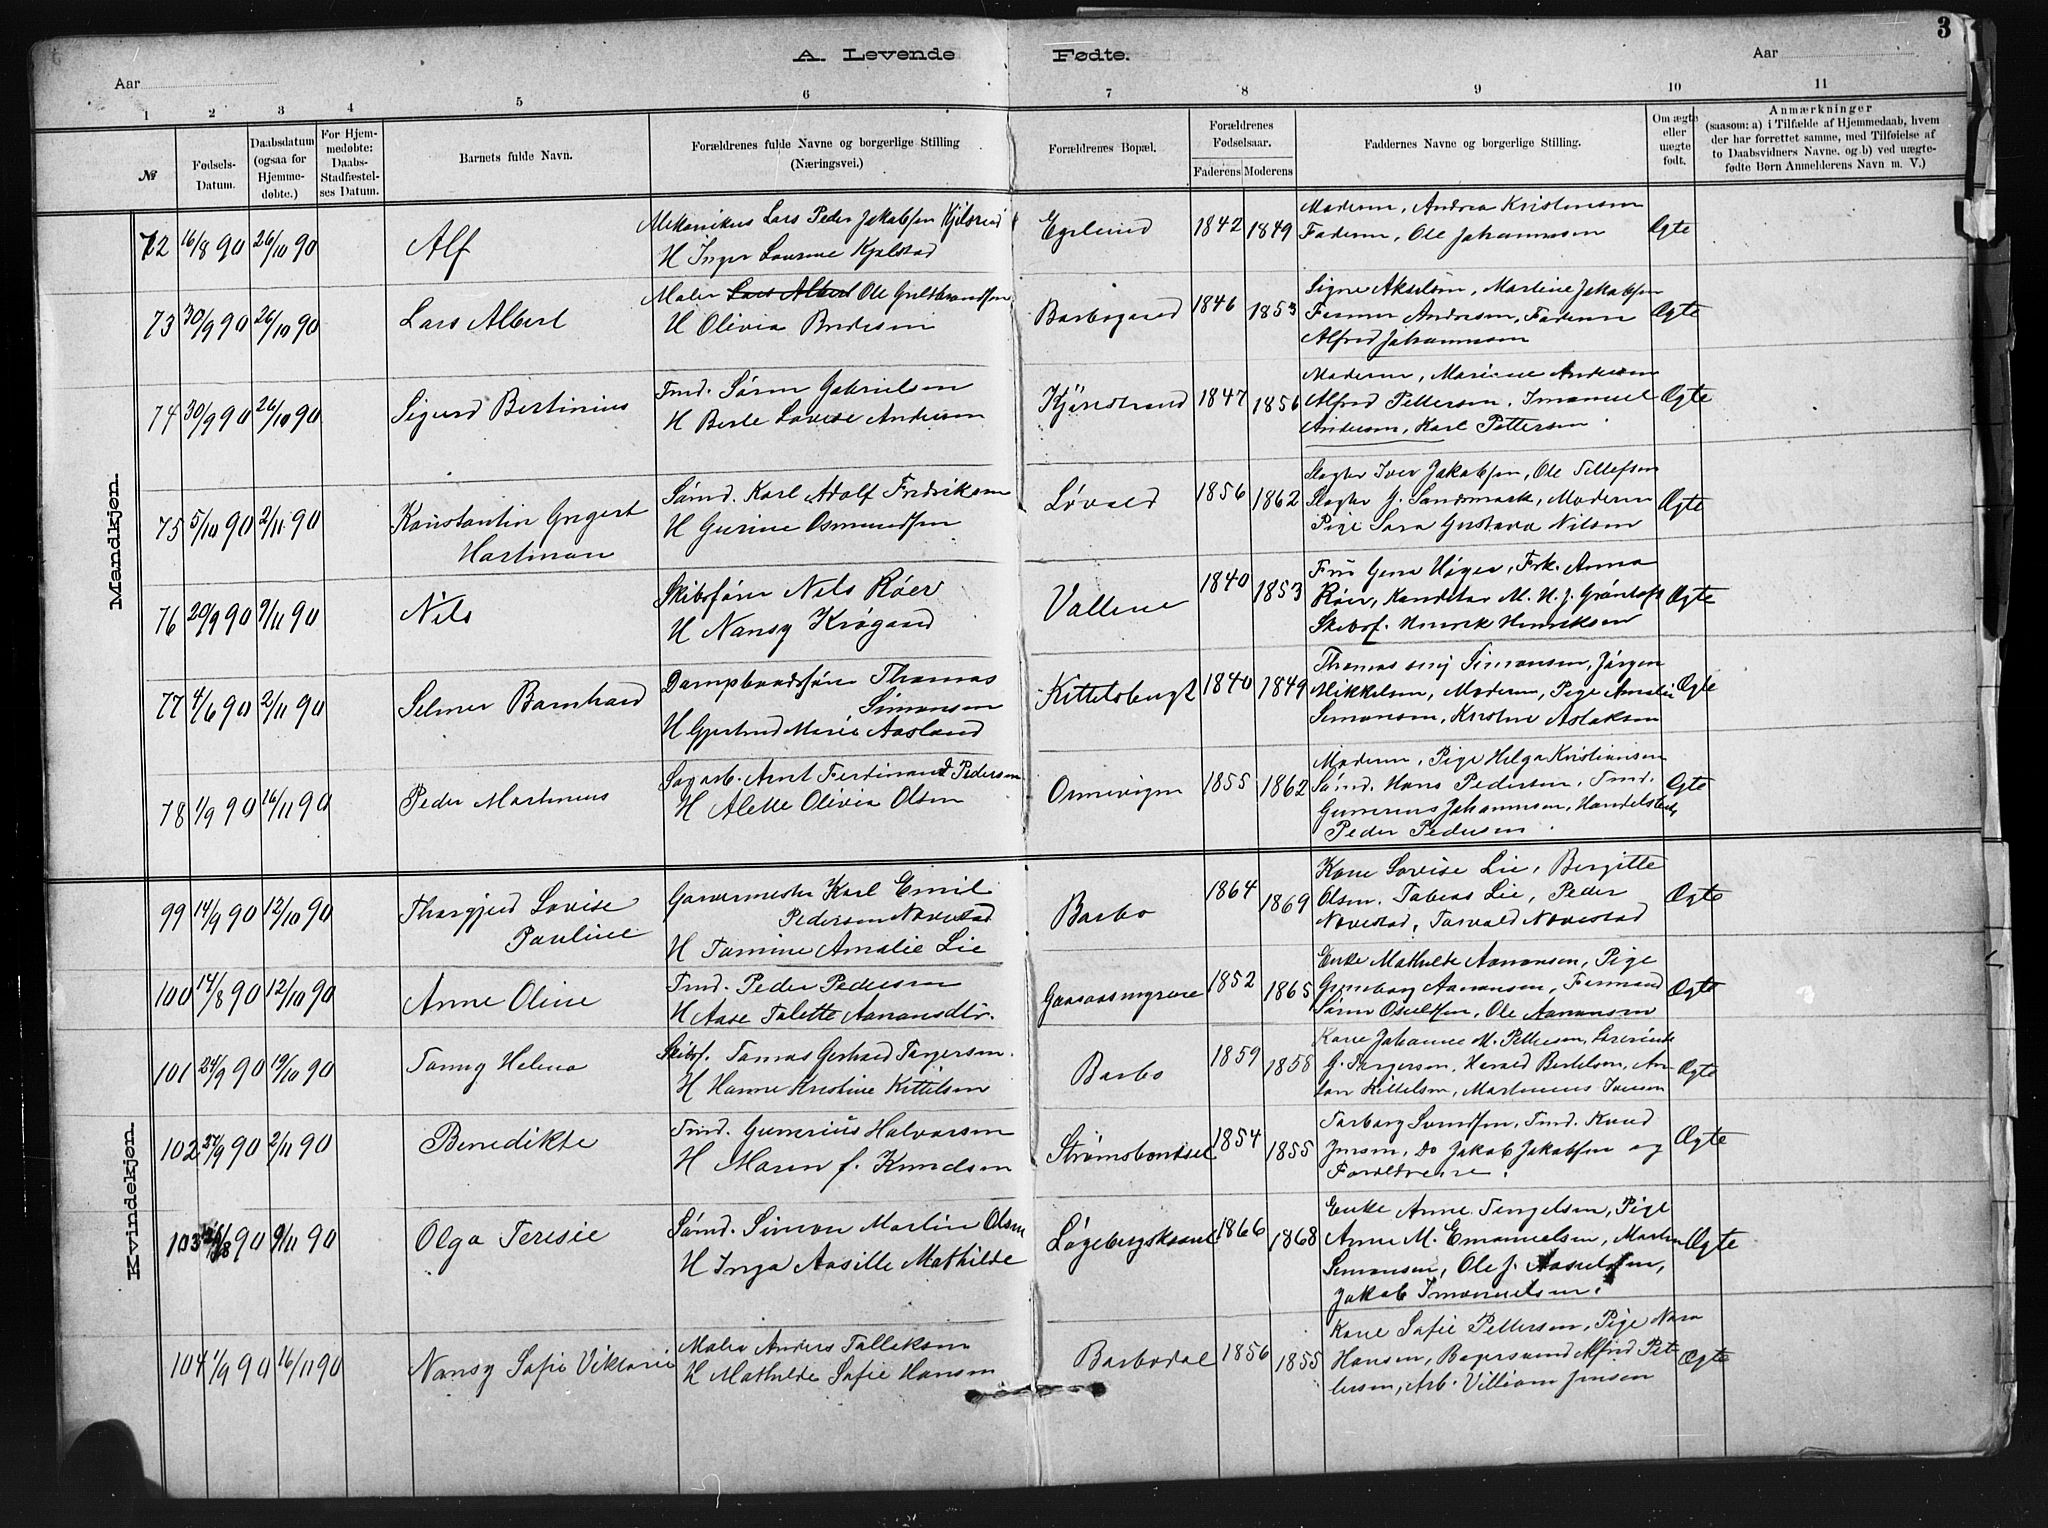 3
A. Levende Fødte.
Aar
Aar
1 2 3 4 5 6 7 8 9 10 11
№
Fødsels-Datum.
Daabsdatum (ogsaa for Hjemme-døbte.)
For Hjem-medøbte: Daabs-Stadfæstel-ses Datum.
Barnets fulde Navn.
Forældrenes fulde Navne og borgerlige Stilling (Næringsvei.)
Forældrenes Bopæl.
Forældrenes Fødselsaar.
Faderens Moderens
Faddernes Navne og borgerlige Stilling.
Om ægte eller uægte født.
Anmærkninger
(saasom: a) i Tilfælde af Hjemmedaab, hvem
der har forrettet samme, med Tilføielse af
to Daabsvidners Navne. og b) ved uægte-
fødte Børn Anmelderens Navn m. V.)
Mandkjøn.
72 16/8 90 26/10 90 Alf
Mekanikus Lars Peder Jakobsen
H Inger Laurine Kjelstad
1842 1849
Moderen, Andrea Kristensen
Faderen, Ole Johannesen
Ægte
73 30/9 90 26/10 90 Lars Albert
Maler Lars Albert Ole Guldbrandsen
H Olivia
1846 1853
Signe Akselsen, Martine Jakobsen
Andresen, Faderen
Alfred Johannesen
Ægte
74 30/9 90 26/10 90 Sigurd Bertinius
Tmd. Søren Gabrielsen
H Berte Lovise Andersen
1847 1856
Moderen, Andersen
Alfred Pettersen, Imanuel
Andersen, Karl Pettersen
Ægte
75 5/10 90 2/11 90 Konstantin Gregert
Hartman
Sømd. Karl Adolf Fredriksen
H Gurine Osmundsen
Løvold
1856 1862
Slagter Iver Jakobsen, Ole Tellefsen
Slagter J. Sandsmark, Moderen
Pige Sara Gustava Nilsen
Ægte
76 29/9 90 9/11 90 Nils
Skibsfører Nils Røer
H Nansy Krøgaard
Vallene
1840 1853
Fru Høyer, Frk. Anna
Røer, M. H. J.
Skibsf. Henrik Henriksen
Ægte
77 4/6 90 2/11 90 Selmer Barnhard
Dampbaadsfører Thomas
Simonsen
H Gjertrud Marie Aasland
1840 1849
Thomas Simonsen, Jørgen
Mikkelsen, Moderen, Pige Amalie
Simonsen, Kristine Aslaksen
Ægte
78 1/9 90 16/11 90 Peder Martinius
Sagarb. Arnt Ferdinand Pedersen
H Alette Olivia Olsen
1855 1862
Moderen, Pige Helga Kristiansen
Sømd. Hans Pedersen, Tmd.
Gunerius Johannesen,
Peder Pedersen
Ægte
Kvindekjøn.
99 14/9 90 12/10 90 Thorgjerd Lovise
Pauline
Garvermester Karl Emil
Pedersen Novestad
H Tomine Amalie Lie
Barbo
1864 1869
Kone Lovise Lie, Bergitte
Olsen, Tobias Lie, Peder
Novestad, Torvald Novestad
Ægte
100 14/8 90 12/10 90 Anne Oline
Tmd. Peder Pedersen
H Aase Talette Aanonsdtr.
1852 1865
Enke Mathilde Aanonsen, Pige
Aanonsen,
Søren Osuldsen, Ole Aanonsen
Ægte
101 24/9 90 19/10 90 Tomy Helena
Skibsf. Tomas Gerhard Torjersen.
H Hanne Kristine Kittilsen
Barbo
1859 1858
Kone Johanne M. Pettersen,
G. Torjersen, Harald Bertelsen, An-
ton Kittelsen, Martinius Iversen
Ægte
102 27/9 90 2/11 90 Benedikte
Tmd. Gunerius Halvorsen
H Maren J. Knudsen
1854 1855
Torborg Svendsen, Tmd. Knud
Jensen, Do Jakob Jakobsen og
Forældrene.
Ægte
103 90 9/11 90 Olga Teresie
Sømd. Simon Martin Olsen
H Inga Aasille Mathilde
1866 1868
Enke Anne Pige
Anne M. Emanuelsen, Martin
Simonsen, Ole J.
Jakob Imanuelsen.
Ægte
104 1/9 90 16/11 90 Nansy Sofie Viktorie
Maler Anders Tallaksen
H Mathilde Sofie Hansen
Barbodal
1856 1855
Kone Sofie Pettersen, Pige Nara
Hansen, Bagersvend Alfred Pet
tersen, Arb. Villiam Jensen
Ægte